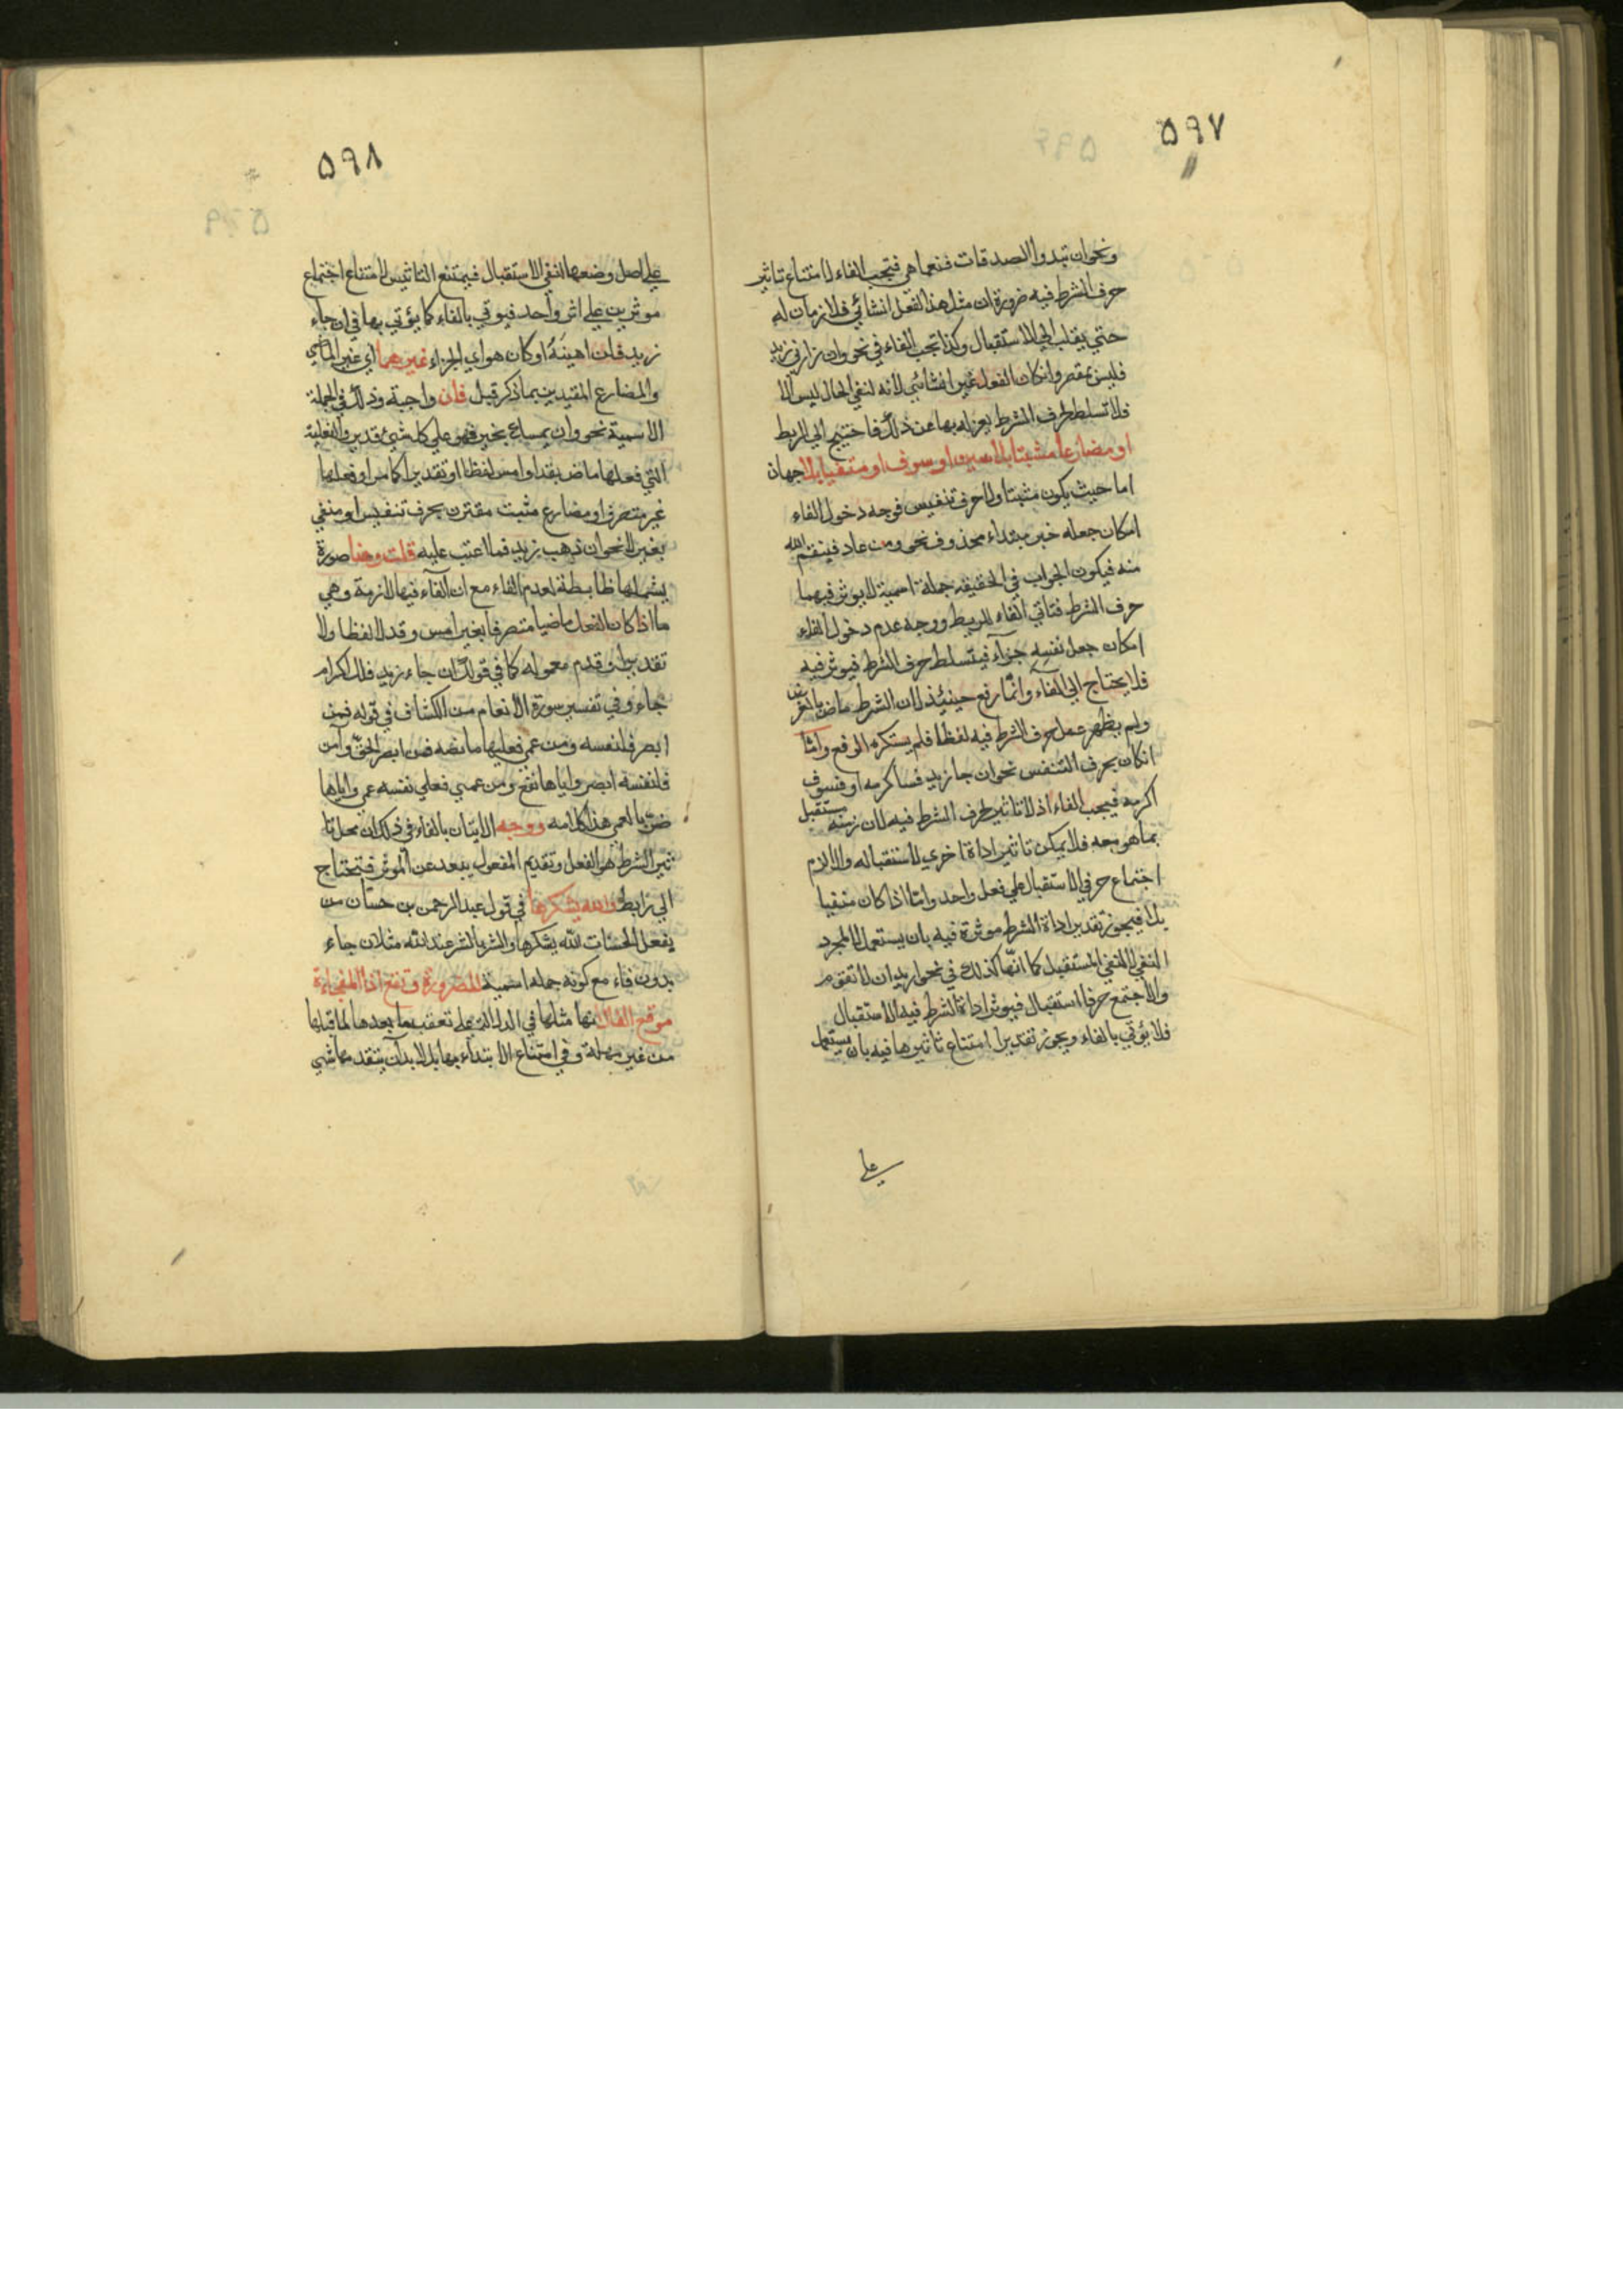 ٥٩٧
ونحو ان تبدوا الصدقات فنعما هي فتجب الفاء لامتناع تاثير
حرف الشرط فيه ضرورة ان مثل هذا الفعل انشائي فلا زمان له
حتي يقلب الي الاستقبال وكذا تجب الفاء في نحو وان زارني زيد
فليس بمقصر وانكان الفعل غير انشائي لانه لنفي الحال ليس الا
فلا تسلط لحرف الشرط بعزله بها عن ذلك فاحتيج الي الربط
او مضارعا مثبتا بلا سين او سوف او منفيا بلا جهان
اما حيث يكون مثبتا ولا حرف تنفيس فوجه دخول الفاء
امكان جعله خبر مبتداء محذوف نحو ومن عاد فينتقم الله
منه فيكون الجواب في الحقيقه جملة اسمية لا يوثر فيها
حرف الشرط فتاتي الفاء للربط ووجه عدم دخول الفاء
امكان جعل نفسه جزآء فيتسلط حرف الشرط فيوثر فيه
فلا يحتاج الي الفآء وانما رفع حينئذ لان الشرط ماض
ولم يظهر عمل حرف الشرط فيه لفظا فلم يستكره الرفع واما
انكان بحرف التنفس نحو ان جا زيد فساكرمه او فسوف
اكرمه فيجب الفاء اذ لا تاثير لحرف الشرط فيه لان زمنه مستقبل
بما هو معه فلا يمكن تاثير اداة اخري لاستقباله والا لزم
اجتماع حرفي الاستقبال علي فعل واحد واما اذا كان منفيا
بلا فيجوز تقدير اداة الشرط موثرة فيه بان يستعمل لا لمجرد
النفي لا للنفي المستقبل كما انها كذلك في نحو اريد ان لا تقوم
والا جتمع حرفا استقبال فيوثر اداة الشرط فيه الاستقبال
فلا يؤتي بالفاء ويجوز تقدير امتناع تاثيرها فيه بان يستعمل
علي
٥٩٨
علي اصل وضعها لنفي الاستقبال فيمتنع التاثير لامتناع اجتماع
موثرين علي اثر واحد فيوتي بالفاء كما يؤتي بها في ان جاء
زيد فلن اهينه او كان هو اي الجزاء غيرهما اي غير الماضي
والمضارع المقيدين بما ذكر قبل فان واجبة وذلك في الجملة
الاسمية نحو وان يمسك بخير فهو علي كل شئ قدير والفعلية
التي فعلها ماض بقد او امس لفظا او تقديرا كما مر او فعلها
غير متصرف او مضارع مثبت مقترن بحرف تنفيس او منفي
بغير لا نحو ان ذهب زيد فما اعتب عليه قلت وهنا صورة
يشملها ظابطة لعدم الفاء مع ان الفآء فيها لازمة وهي
ما اذا كان الفعل ماضيا متصرفا بغير امس وقد لا لفظا ولا
تقديرا قدم معموله كما في قولك ان جاء زيد فلك اكرام
جاء وفي تفسير سورة الانعام من الكشاف في قوله فمن
ابصر فلنفسه ومن عمي فعليها ما نصه فمن ابصر الحق وآمن
فلنفسه ابصر واياها نفع ومن عمي فعلي نفسه عمي واياها
ضر بالعمي هذا كلامه ووجه الاتيان بالفاء في ذلك ان محل تا
ثير الشرط هو الفعل وتقديم المفعول يبعد عن الموثر فيحتاج
الي رابط فالله يشكرها في قول عبد الرحمن بن حسان من
يفعل الحسنات الله يشكرها والشر بالشر عند الله مثلان جاء
بدون فاء مع كونه جمله اسمية للضرورة وتقع اذا المفجاءة
موقع الفا لانها مثلها في الدلالة علي تعقب ما بعدها لما قبلها
من غير مهلة وفي امتناع الابتداء بها بل لا بد ان يتقدمها شي